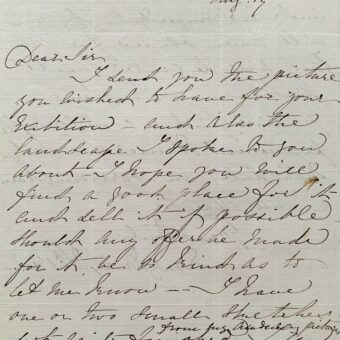 Aug. 19
Dear Sir
I send you the picture
you wished to have for your
Exibition - and also the
landscape I spoke to you
about - I hope you will
find a good place for it
and sell it if possible
should any offer be made
for it be so kind as to
let me know - I have
one or two small sketches
from my Academy picture